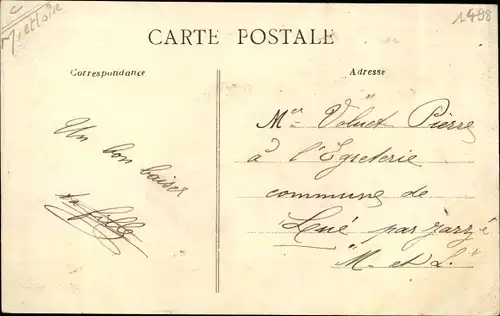 1908
CARTE POSTALE
Correspondance
Adresse
Un bon baiser
ta fille
Mr Voluet Pierre
à l'Egreterie
commune de
Lué par Jarzé
"M. et L."